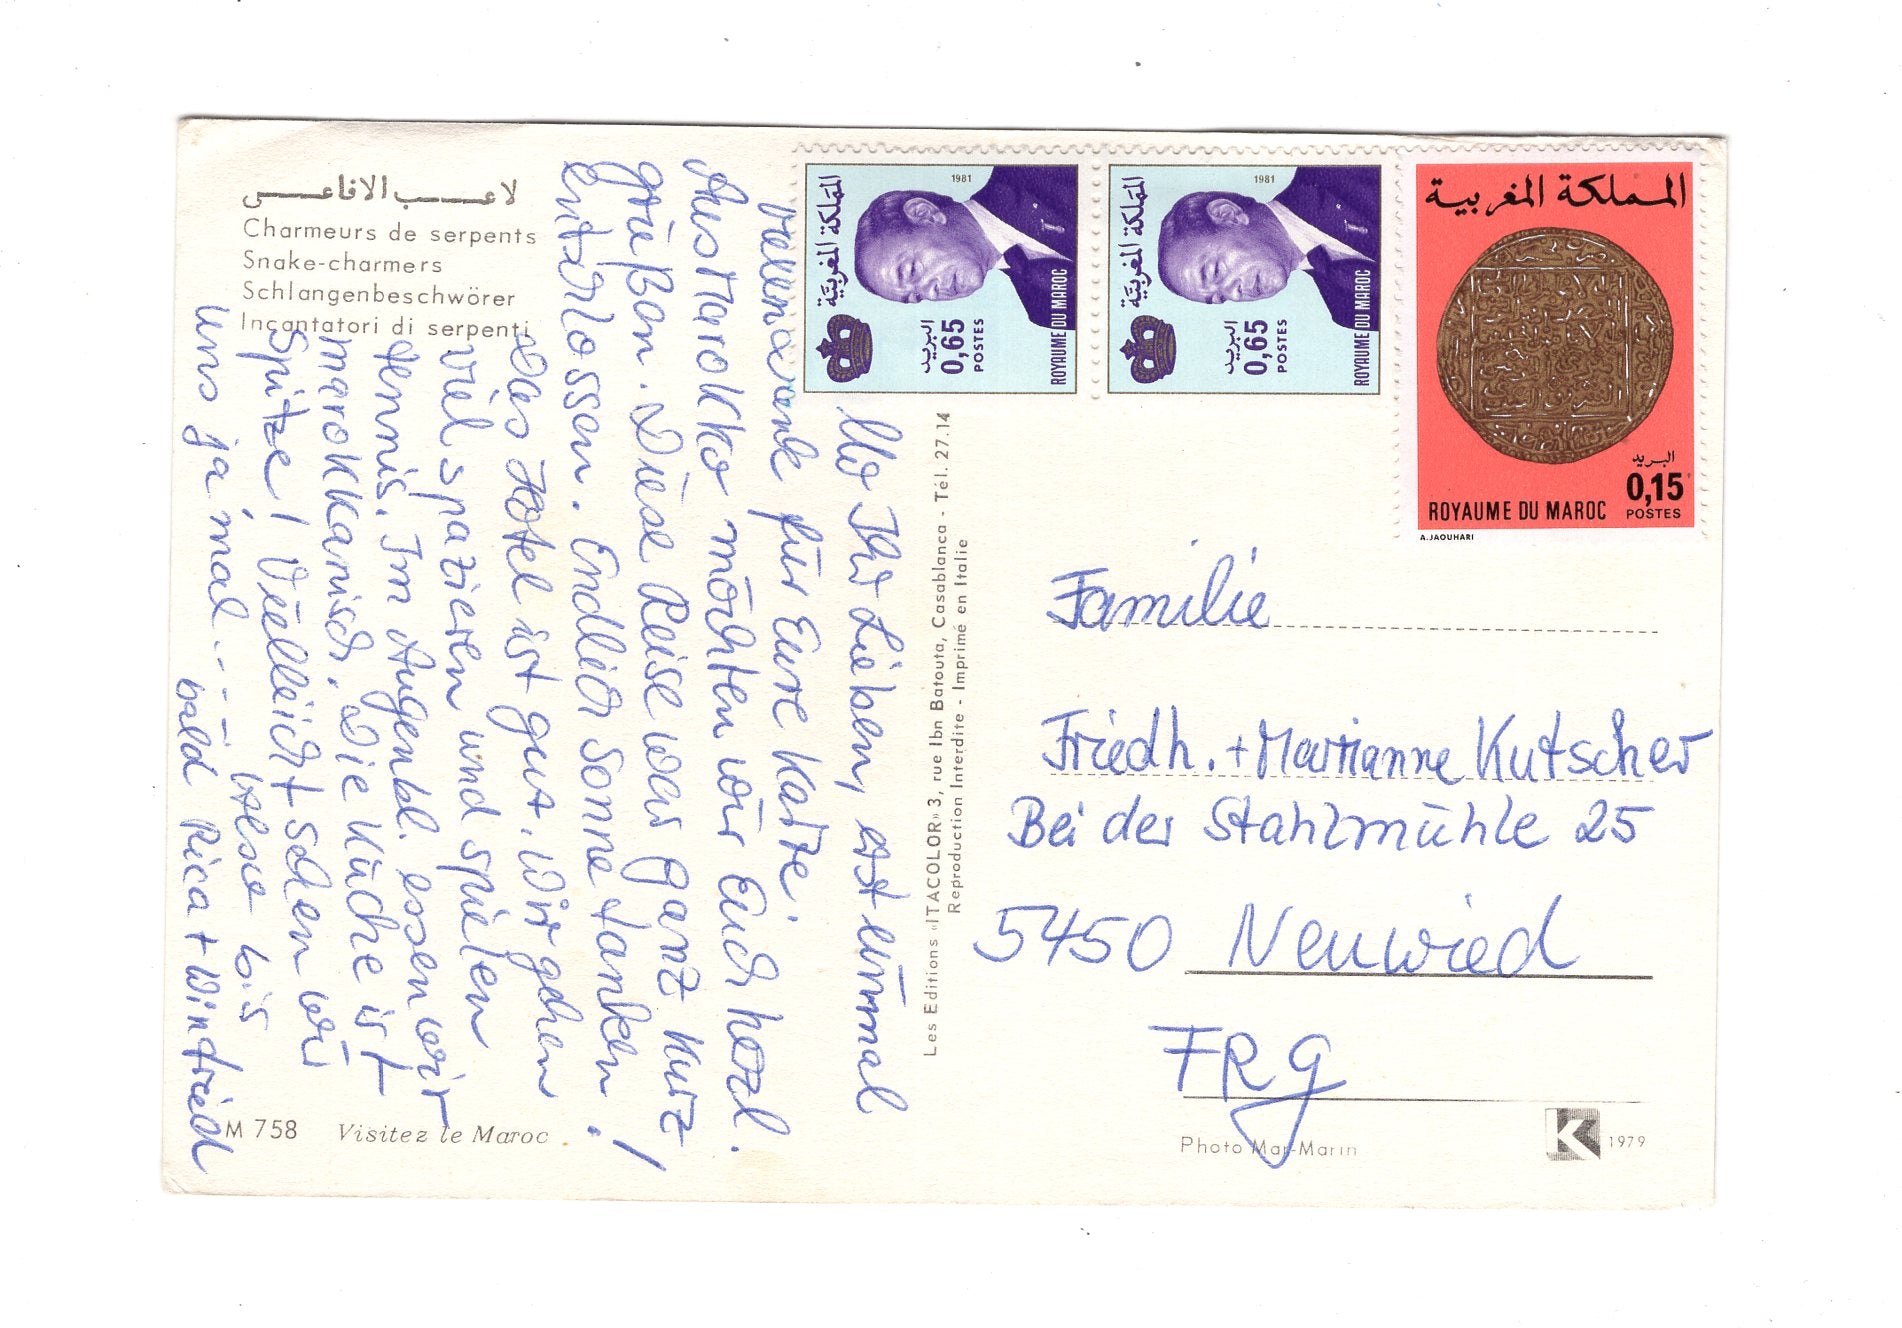 لاعب الافاعي
Charmeurs de serpents
Snake-charmers
Schlangenbeschwörer
Incantatori di serpenti
Ihr Lieben, erst einmal
vielen Dank für Eure Karte.
Aus Marokko möchten wir Euch herzl.
grüßen. Diese Reise war ganz kurz
entschlossen. Endlich Sonne tanken!
Das Hotel ist gut. Wir gehen
viel spazieren und spielen
Tennis. Im Augenbl. essen wir
marokkanisch. Die Küche ist
Spitze! Vielleicht sehen wir
uns ja mal.... Also bis
bald Rica + Winfried
M 758
Visitez le Maroc
Les Editions «ITACOLOR» 3, rue Ibn Batouta, Casablanca - Tél. 27.14
Reproduction Interdite - Imprimé en Italie
المملكة المغربية
1981
البريد
0,65
POSTES
ROYAUME DU MAROC
المملكة المغربية
1981
البريد
0,65
POSTES
ROYAUME DU MAROC
المملكة المغربية
البريد
0,15
ROYAUME DU MAROC POSTES
A.JAOUHARI
Familie
Friedh. + Marianne Kutscher
Bei der Stahlmühle 25
5450 Neuwied
FRG
Photo Mar-Marin
K 1979